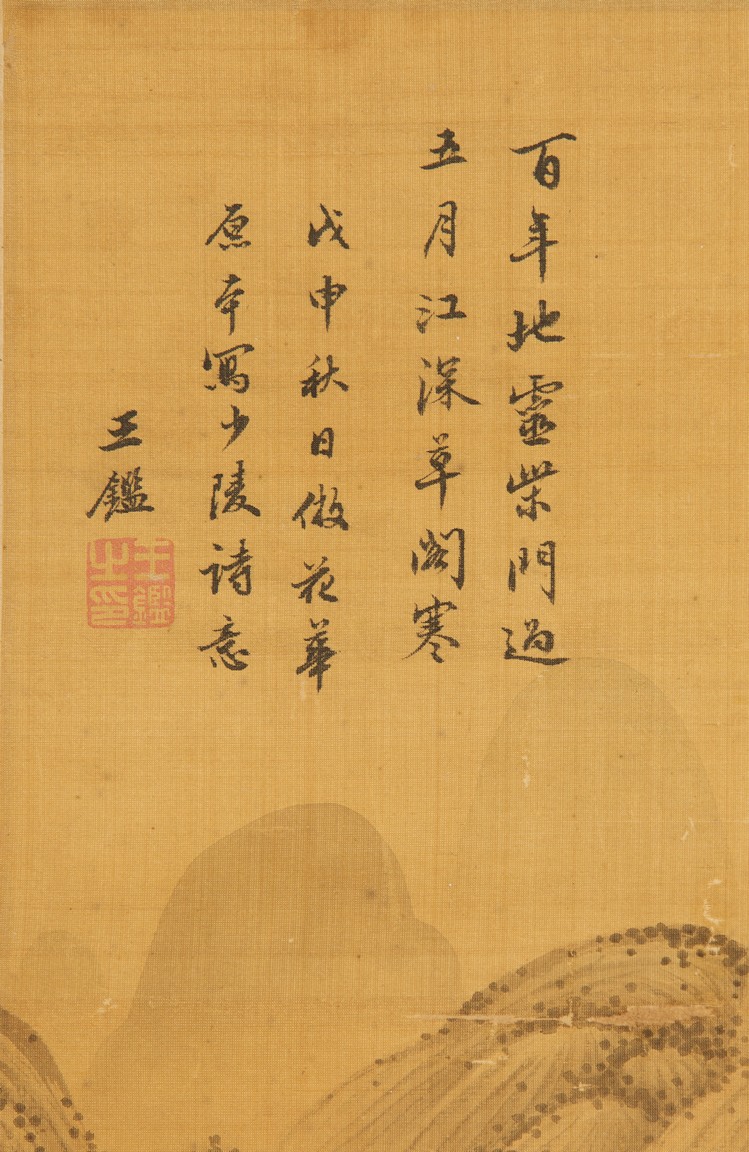 百年地靈柴門過
五月江深草閣寒
戊申秋日倣花華
原本寫少陵詩意
王鑑
王鑑之印